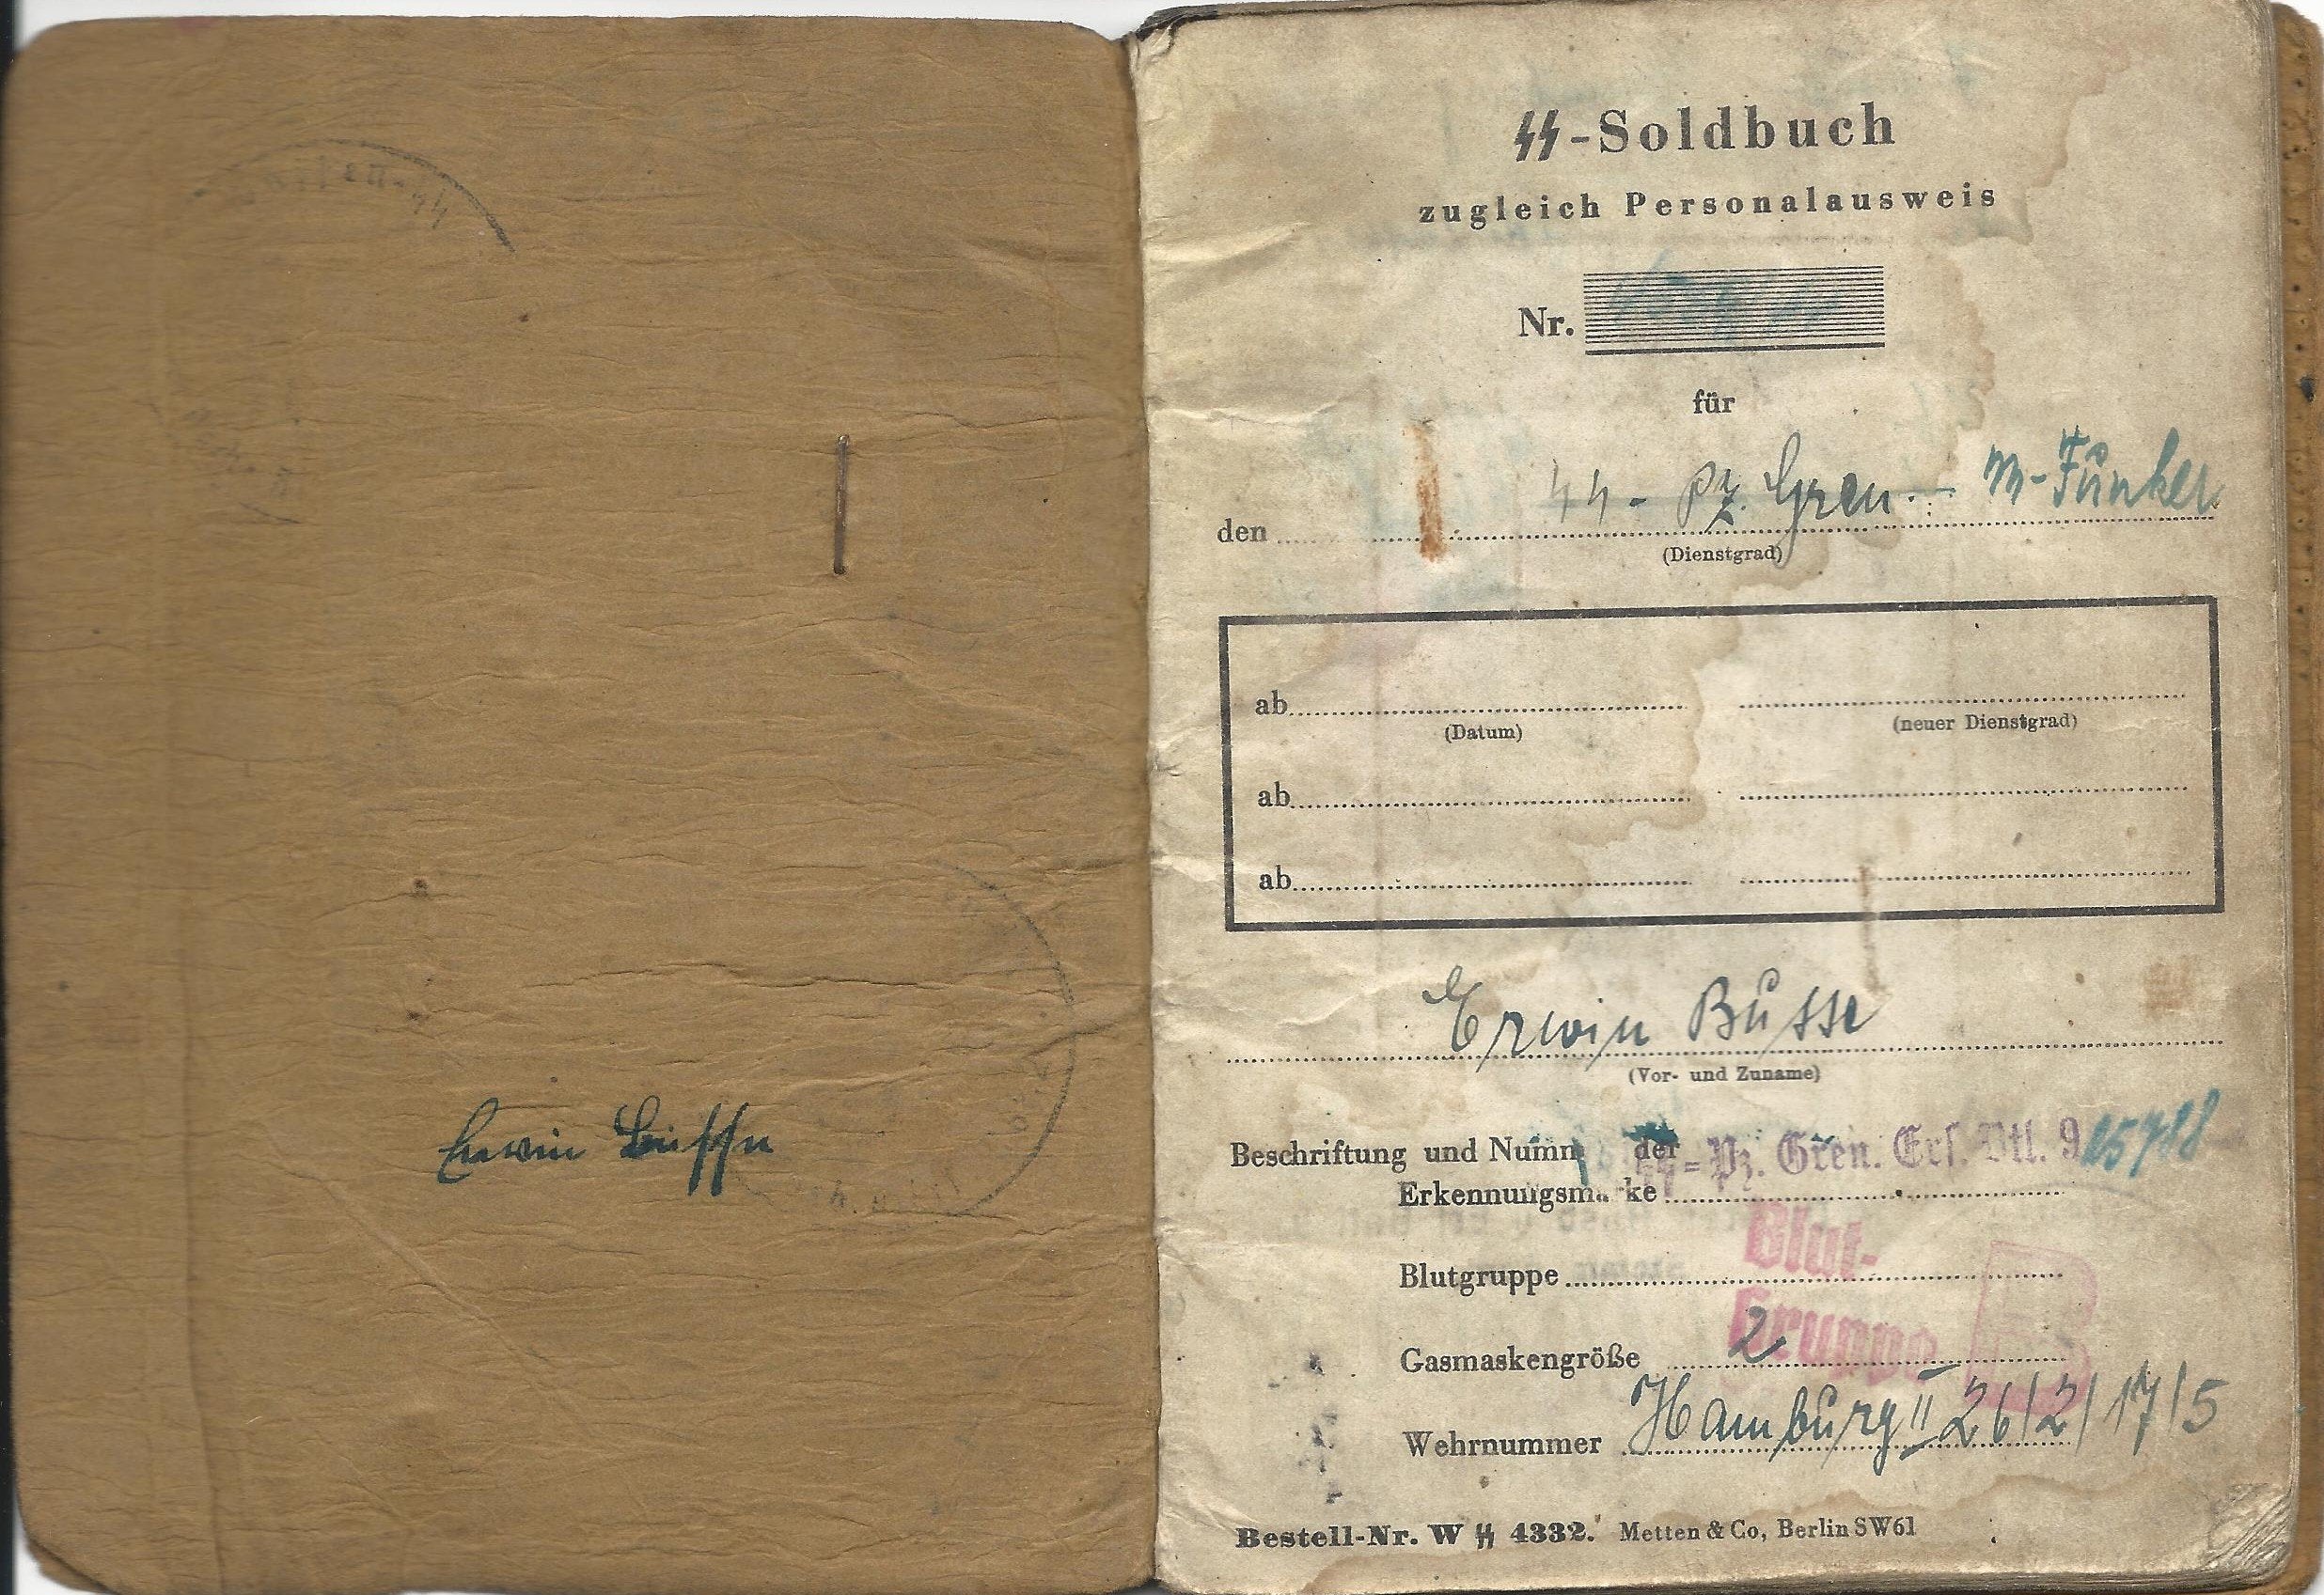 Waffen-SS
Erwin Busse
SS-Soldbuch
zugleich Personalausweis
Nr.
für
den SS-Pz. Gren. - M-Funker
(Dienstgrad)
ab
(Datum) (neuer Dienstgrad)
ab
ab
Erwin Busse
(Vor- und Zuname)
Beschriftung und Numm der SS=Pz. Gren. Ers. Btl. 9
Erkennungsmarke
Blutgruppe Blut-Gruppe B
Gasmaskengröße 2
Wehrnummer Hamburg II 26/2/17/5
Bestell-Nr. W SS 4332. Metten & Co, Berlin SW61